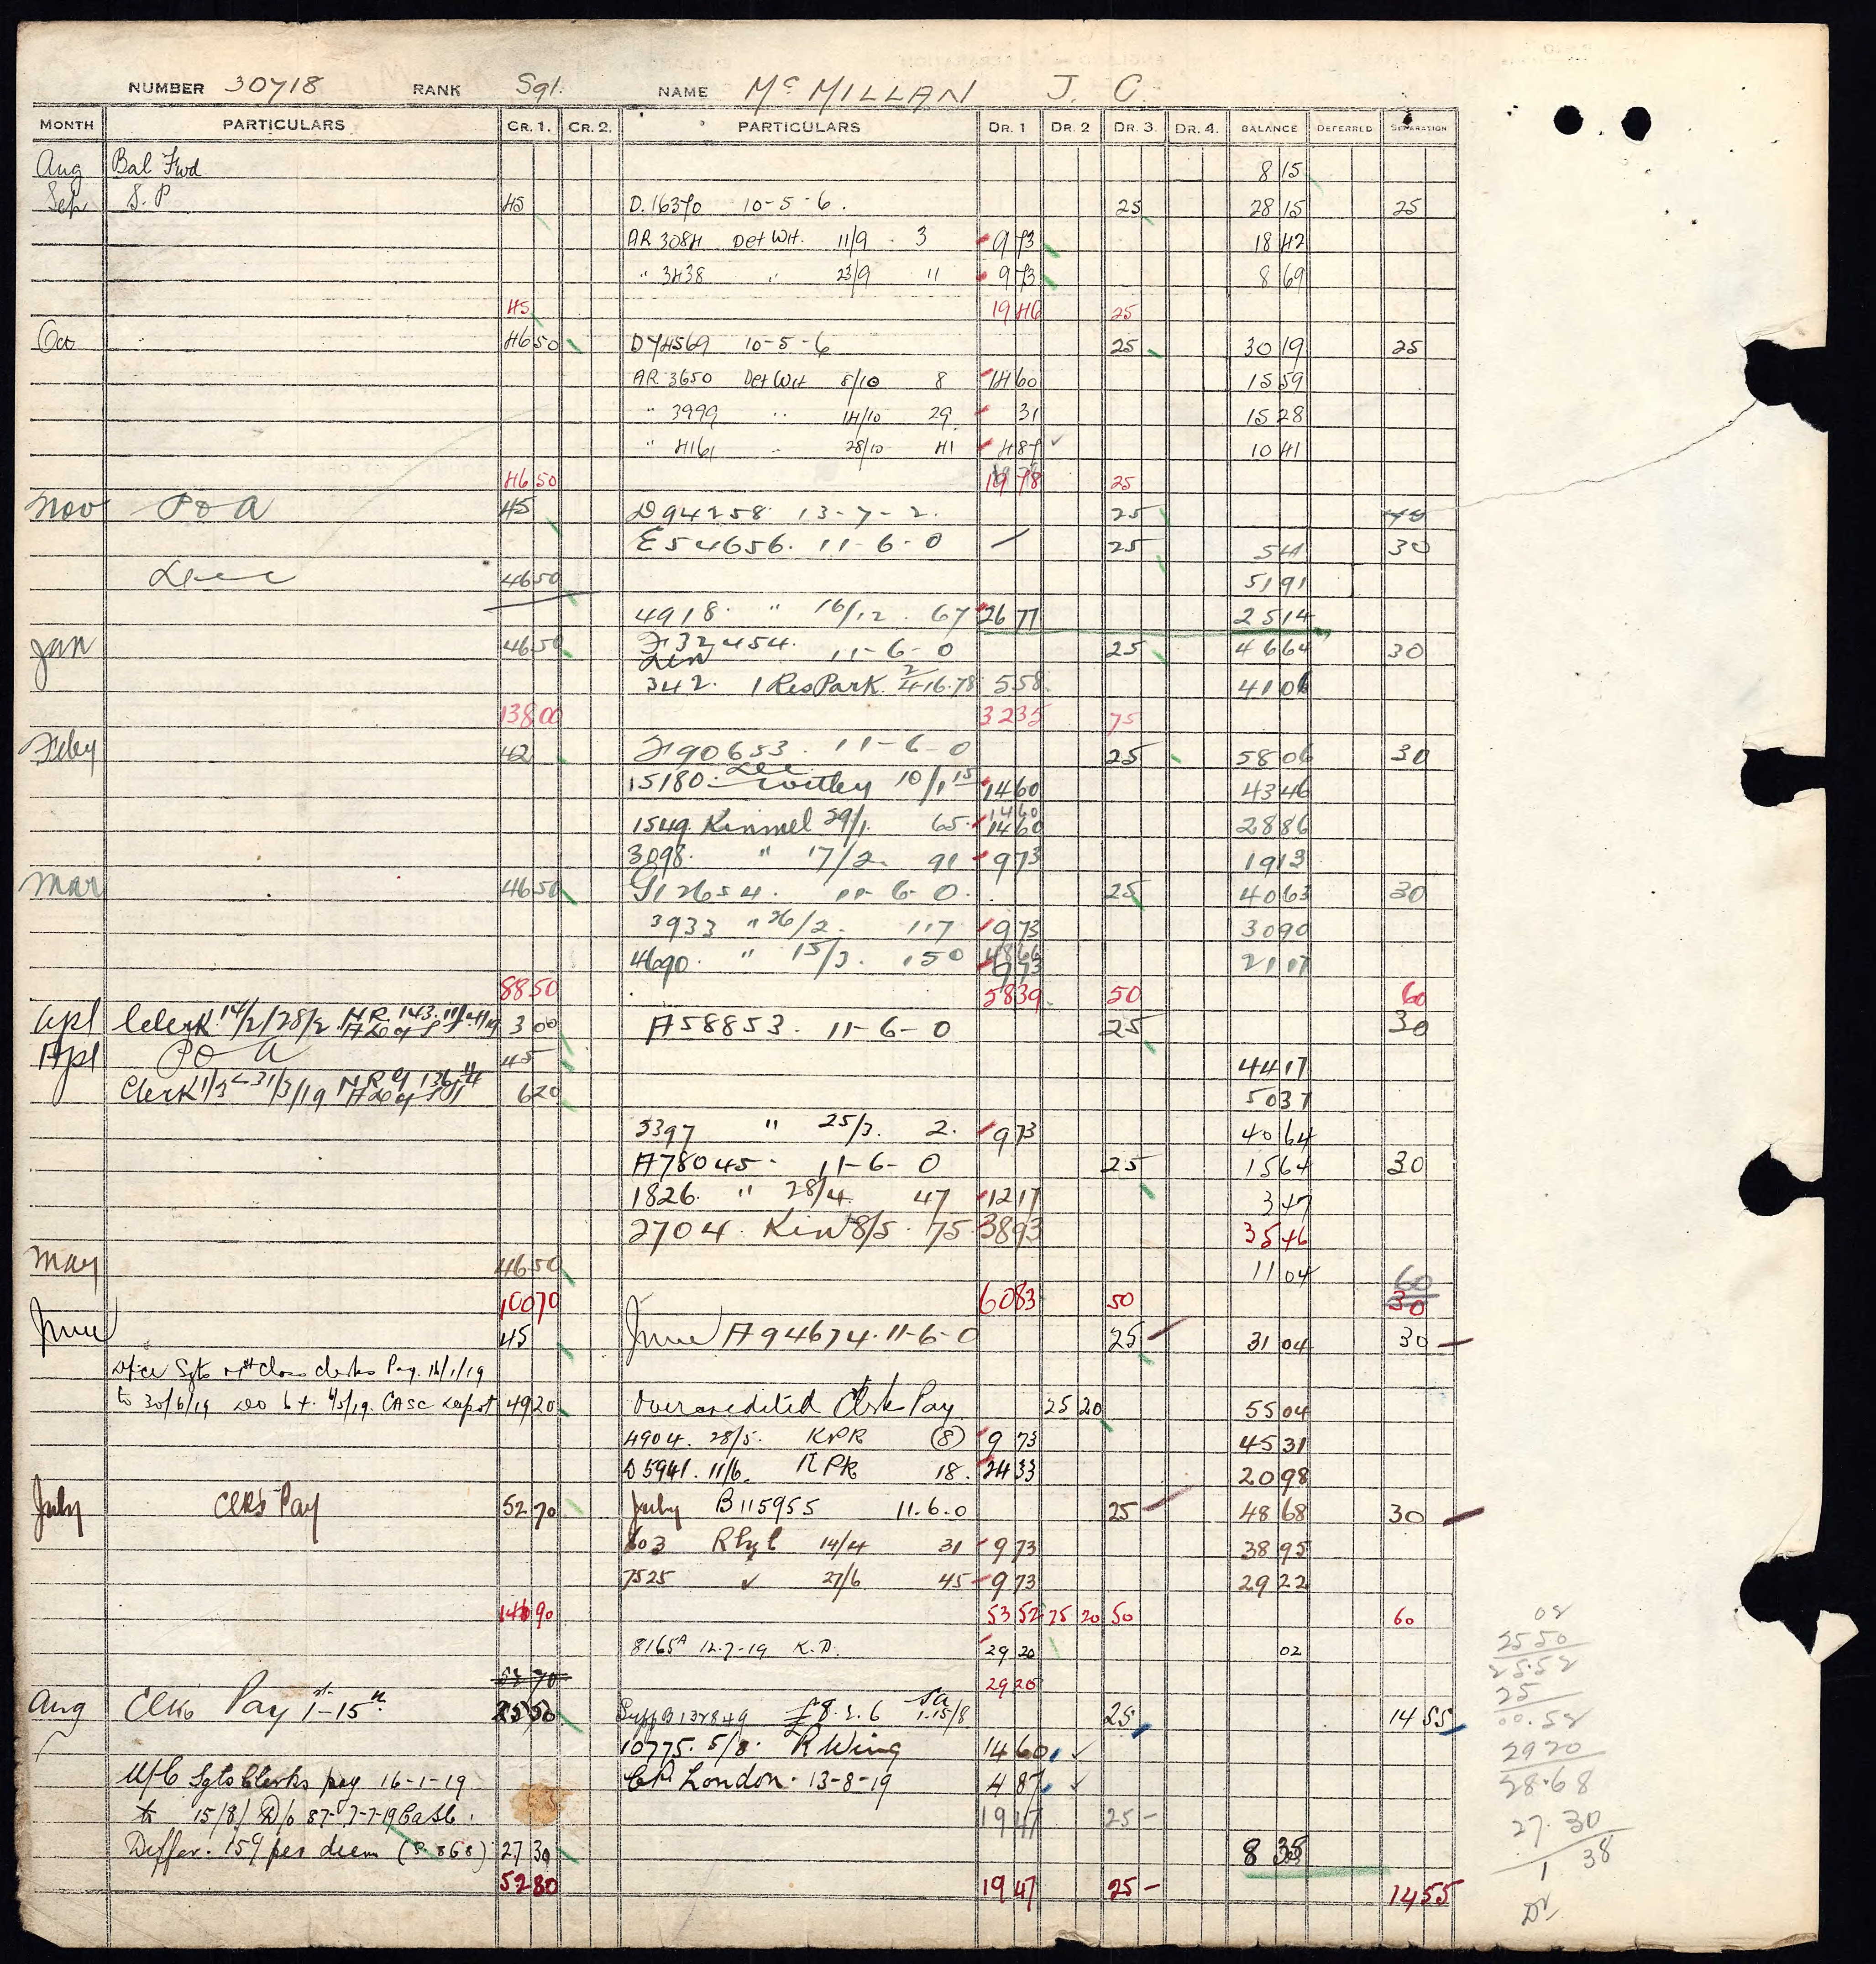 NUMBER 30718 RANK Sgt. NAME McMILLAN J. C.
MONTH PARTICULARS CR. 1. CR. 2. PARTICULARS DR. 1 DR. 2 DR. 3. DR. 4. BALANCE DEFERRED SEPARATION
Aug Bal Fwd 8 15
Sep S. P 45 D. 16370 10-5-6. 25 28 15 25
AR 3084 Det Wit. 11/9 3 9 73 18 42
" 3438 " 23/9 11 9 73 8 69
45 19 46 25
Oct 46 50 D74569 10-5-6 25 30 19 25
AR. 3650 Det Wit 8/10 8 14 60 15 59
" 3999 " 14/10 29 31 15 28
" 4161 " 28/10 41 4 87 10 41
46 50 19 78 25
Nov P o A 45 D94258 13-7-2. 25
E54656. 11-6-0 25 5 41 30
Dec 46 50 51 91
4918. " 16/12. 67 26 77 25 14
Jan 46 50 F32454. 11-6-0 25 46 64 30
342. 1 Res Park. 2/4 16.78 5 58 41 06
138 00 32 35 75
Feby 42 F90653. 11-6-0 25 58 06 30
15180. Witley 10/1 15 14 60 43 46
1549. Kinmel 29/1. 65. 14 60 28 86
3098. " 17/2. 91 9 73 19 13
Mar 46 50 G12654. 11-6-0. 25 40 63 30
3933 " 26/2. 117 9 73 30 90
4690. " 15/3. 150 9 73 21 17
88 50 58 39 50 60
Apl Clerk 14/2/28/2 N.R. 143. 11/4/19 3 00 A58853. 11-6-0 25 30
Apl P o A 45 44 17
Clerk 1/3 31/3/19 6 20 50 37
5397 " 25/3. 2. 9 73 40 64
A78045. 11-6-0 25 15 64 30
1826. " 28/4. 47 12 17 3 47
2704. Kin 8/5. 75. 38 93 35 46
May 46 50 11 04
100 70 60 83 50 60 30
June 45 June A94674. 11-6-0 25 31 04 30
Dfce Sgts Class clerks Pay. 16/1/19
to 30/6/19 DO 64. 4/5/19. CASC Depot 49 20 Overcredited Clerk Pay 25 20 55 04
4904. 28/5. KPR (8) 9 73 45 31
D5941. 11/6. KPR 18. 24 33 20 98
July Clks Pay 52 70 July B115955 11.6.0 25 48 68 30
603 Rhyl 14/4 31 9 73 38 95
7525 ✓ 27/6 45 9 73 29 22
146 90 53 52 25 20 50 60
8165A 12-7-19 K.D. 29 20 02
52 70 29 20
Aug Clks Pay 1st-15th 25 50 B132849 £8.2.6 SA 1-15/8 25 14 55
10775. 5/8. R Wing 14 60
M/C Sgts Clerks pay 16-1-19 London. 13-8-19 4 87
to 15/8/ D/o 87-7-7-19 CaSC. 19 47 25 -
Differ. 15¢ per diem (S.868) 27 30 8 35
52 80 19 47 25 - 14 55
02
25 50
25.52
25
00.52
29 20
28.68
27.30
1 38
Dr